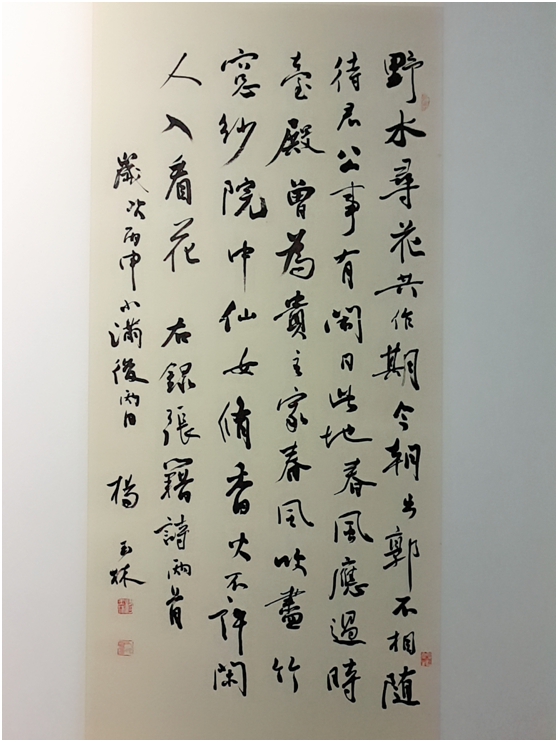 野水尋花共作期今朝出郭不相隨
待君公事有閑日此地春風應過時
臺殿曾為貴主家春風吹盡竹
窓紗院中仙女脩香火不許閑
人入看花 右錄張籍詩兩首
歲次丙申小滿後兩日 楊